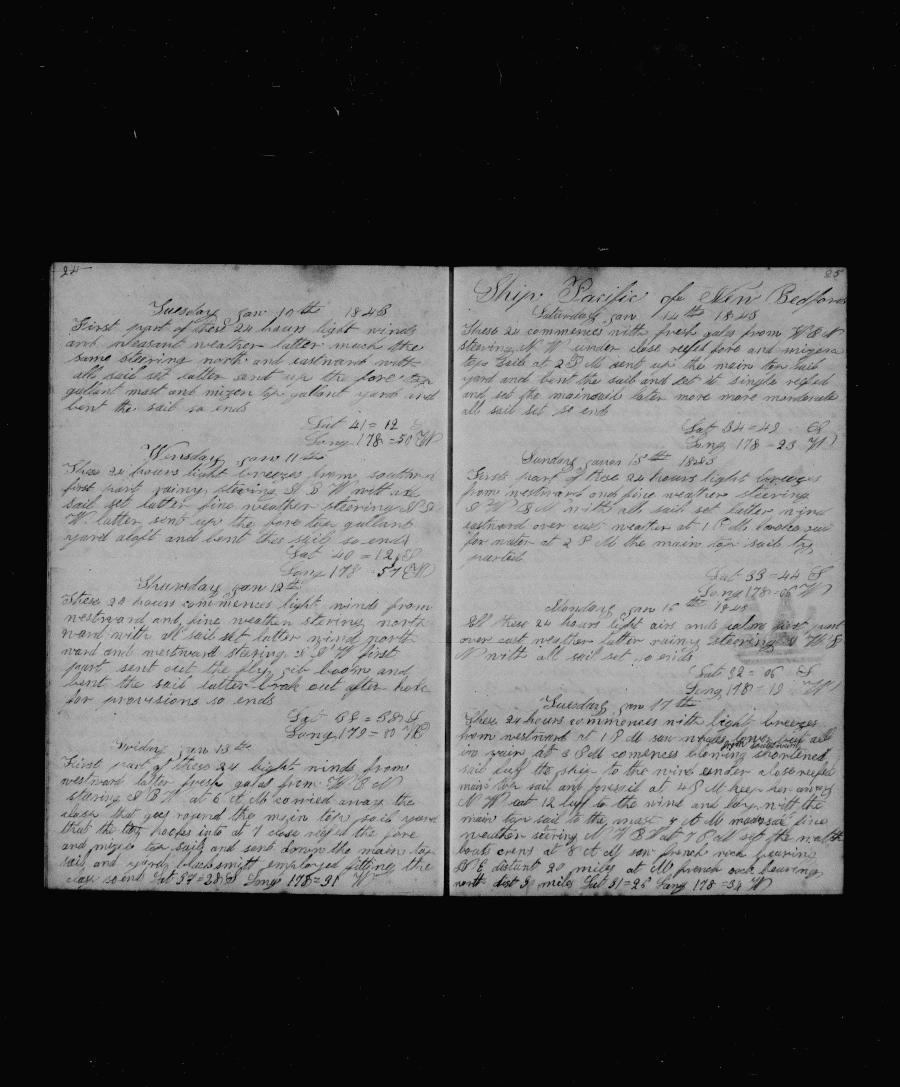 24
Tuesday Jan 10th 1843
First part of these 24 hours light winds
and pleasant weather latter much the
same steering north and eastward with
all sail set latter sent up the fore top
gallant mast and mizen top gallant yard and
bent the sail so ends
Lat 41=12 S
Long 178=50 W
Wensday Jan 11th
These 24 hours light breezes from southward
first part rainy steering N B W with all
sail set latter fine weather steering N B
W latter sent up the fore top gallant
yard aloft and bent the sail so ends
Lat 40=12 S
Long 178=57 W
Thursday Jan 12th
These 24 hours commences light winds from
westward and fine weather stering north
ward with all sail set latter wind north
ward and westward staring first
part sent out the fliy jib boom and
bent the sail latter brok out after hole
for provisions so ends
Lat
Long 179= W
Friday Jan 13th
First part of these 24 light winds from
westward latter fresh gales from W B N
staring N B W at 6 A M carried away the
clasp that goes round the main top sail yard
that the hoopes into at 7 close reefed the fore
and mizen top sails and sent down the main top
sail and yard blacksmith employed fitting the
clasp so end Lat 37=28 S Long 178=91 W
25
Ship Pacific of New Bedford
Saturday Jan 14th 1843
These 24 commences with fresh gales from W B N
steering N W under close reefed fore and mizen
top sails at 2 P M sent up the main top sail
yard and bent the sail and set it single reefed
and set the mainsail later more more moderate
all sail set so ends
Lat 34=42 S
Long 178=23 W
Sunday Jan 15th 1843
First part of these 24 hours light breezes
from westward and fine weather steering
with all sail set latter wind
eastward over cast weather at 1 P M
for water at 2 P M the main top sail
parted
Lat 33=44 S
Long 178=06 W
Monday Jan 16th 1843
All these 24 hours light airs and calm first part
over cast weather latter rainy steering W B
N with all sail set so ends
Lat 32=06 S
Long 178=19 W
Tuesday Jan 17th
These 24 hours commences with light breezes
from westward at 1 P M saw
from southward
in vain at 3 P M comences blowing shortened
sail luf the ship to the wind under a close reefed
main top sail and foresail at 4 P M keep her away
N W at 12 luff to the wind and lay with the
main top sail to the mast 4 A M made sail fine
weather steering at 7 A M set the
boats crews at 8 A M saw french rock bearing
distant 20 miles at M french rock bearing
north dist 30 miles Lat 31=26 Long 178=34 W